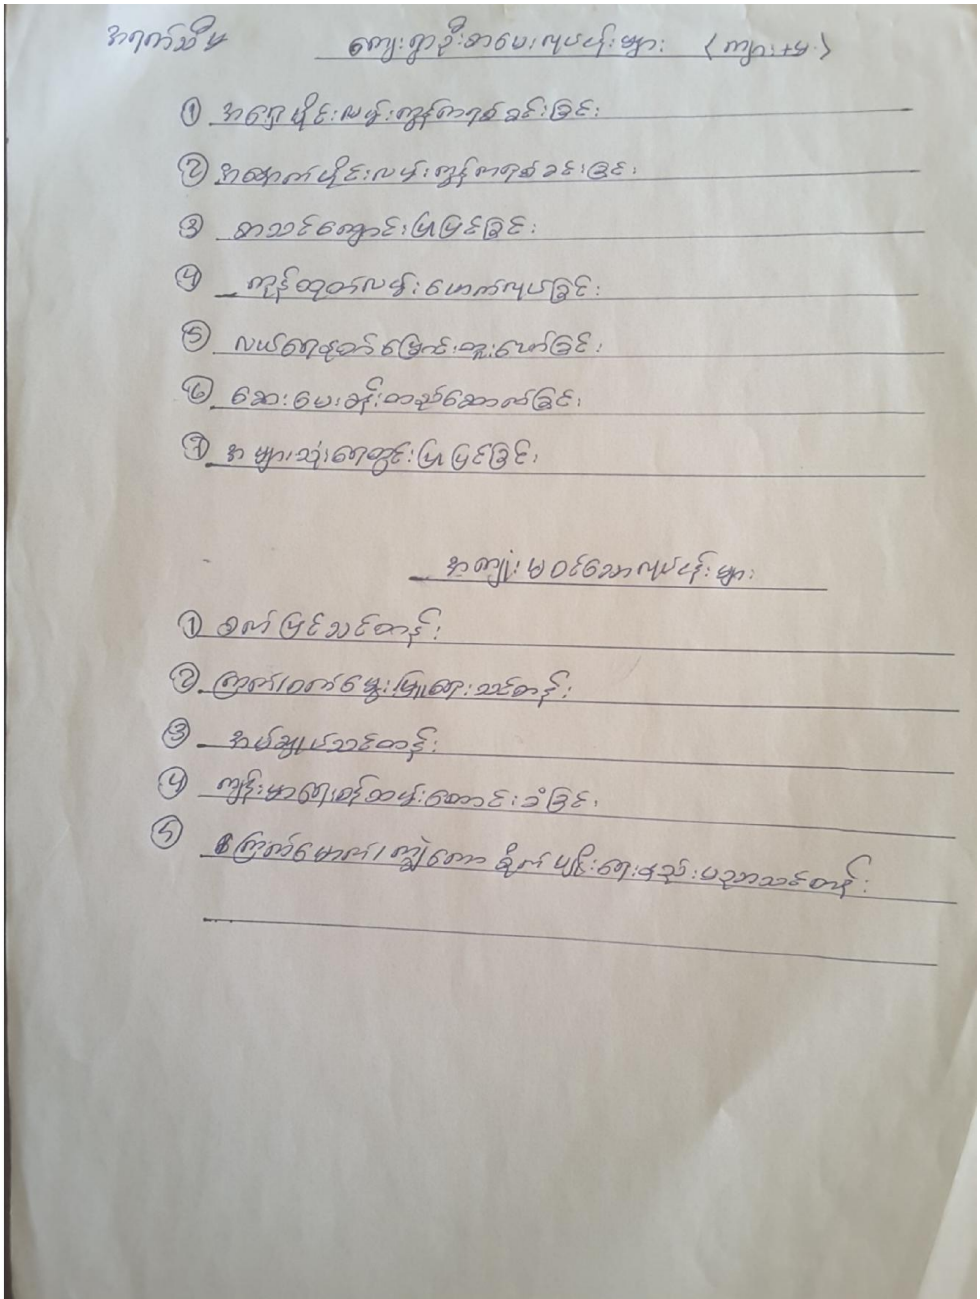 အရက်သီမ ကျေးရွာဦးစားပေးလုပ်ငန်းများ (ကျား+မ)
① အရှေ့ပိုင်းလမ်းကွန်ကရစ်ခင်းခြင်း
② အနောက်ပိုင်းလမ်းကွန်ကရစ်ခင်းခြင်း
③ စာသင်ကျောင်းပြုပြင်ခြင်း
④ ကုန်ထုတ်လမ်းဖောက်လုပ်ခြင်း
⑤ လယ်ရေနုတ်မြောင်းတူးဖော်ခြင်း
⑥ ဆေးပေးခန်းတည်ဆောက်ခြင်း
⑦ အများသုံးရေတွင်းပြုပြင်ခြင်း
အကျုံးမဝင်သောလုပ်ငန်းများ
① စက်ပြင်သင်တန်း
② ကြက်၊ဝက်မွေးမြူရေးသင်တန်း
③ အပ်ချုပ်သင်တန်း
④ ကျန်းမာရေးဝန်ထမ်းတောင်းခံခြင်း
⑤ ကြက်မောက်၊ကျွဲကော စိုက်ပျိုးရေးနည်းပညာသင်တန်း